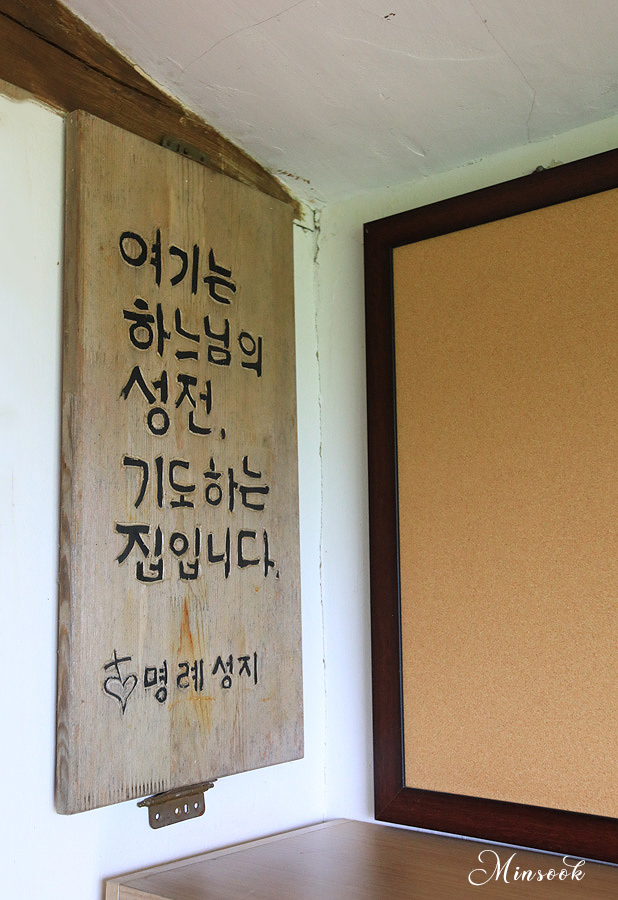 여기는
하느님의
성전.
기도하는
집입니다.
명례성지
Minsook